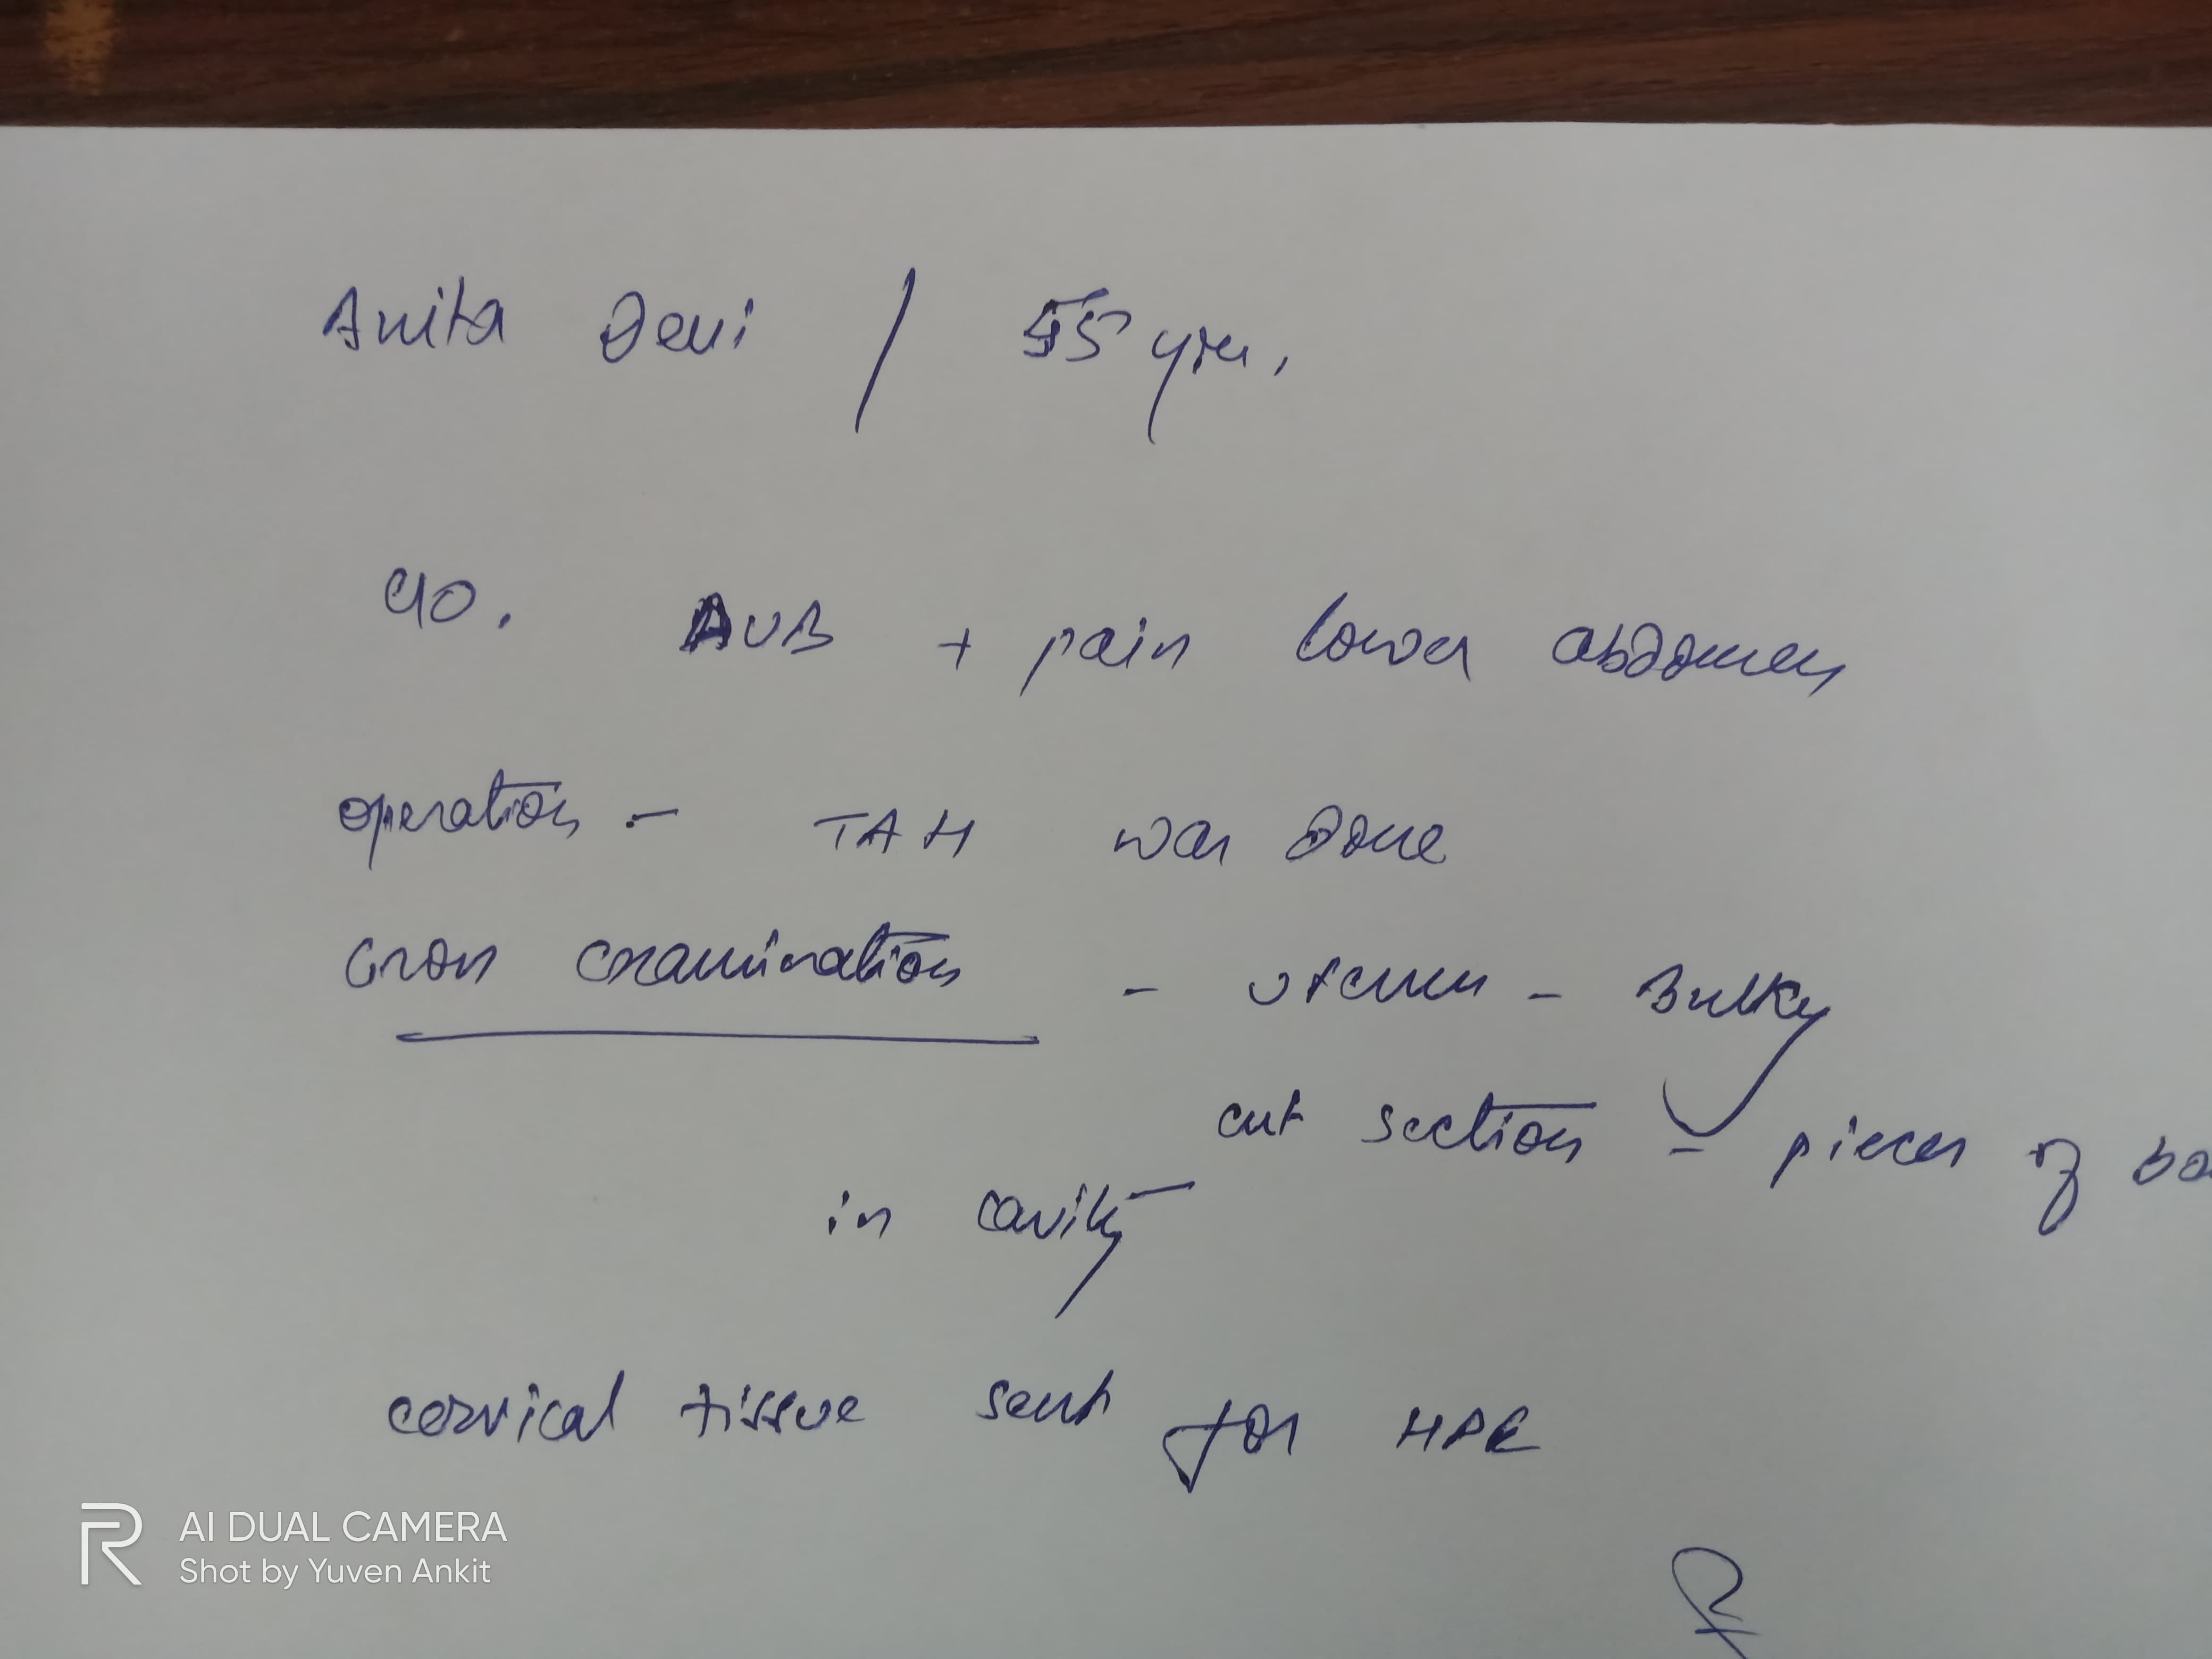 Anita Devi / 55 yrs.
C/O. AUB + pain lower abdomen
operation :- TAH was done
Gross examination - uterus - Bulky
cut section - pieces of
in cavity
cervical tissue sent for HPE
AI DUAL CAMERA
Shot by Yuven Ankit